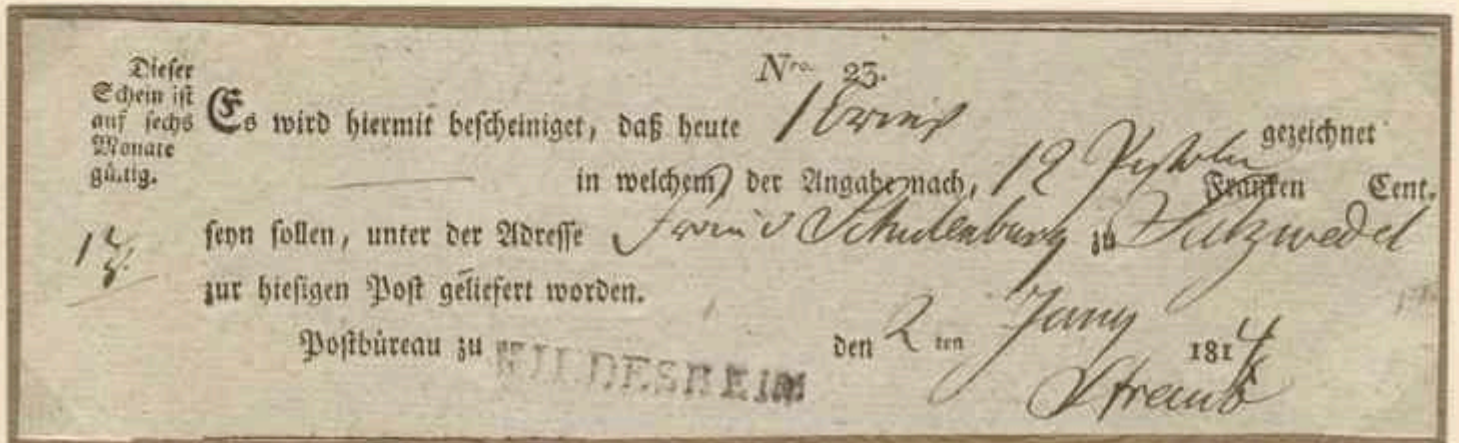 Dieser
Schein ist
auf sechs
Monate
gültig.
Nro. 23.
Es wird hiermit bescheiniget, daß heute 1 gezeichnet
in welchem, der Angabe nach, 12 Pistolen Franken Cent.
seyn sollen, unter der Adresse Schulenburg zu Salzwedel
zur hiesigen Post geliefert worden.
Postbüreau zu HILDESHEIM den 2 ten Jany 1814